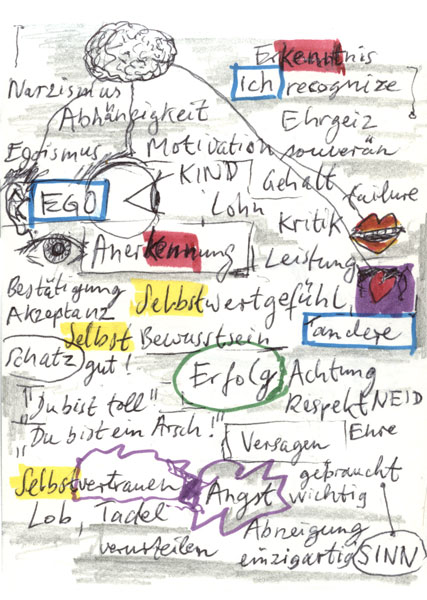 Erkenntnis
ich recognize
Narzismus
Abhängigkeit
Ehrgeiz
Egoismus Motivation souverän
KIND Gehalt failure
EGO Lohn Kritik
Anerkennung Leistung
Bestätigung Selbstwertgefühl
Akzeptanz
andere
Selbst Bewusstsein
Schatz gut!
Erfolg Achtung
"Du bist toll" Respekt NEID
"Du bist ein Arsch!" Versagen Ehre
Selbstvertrauen Angst gebraucht
wichtig
Lob, Tadel Abneigung
verurteilen einzigartig SINN